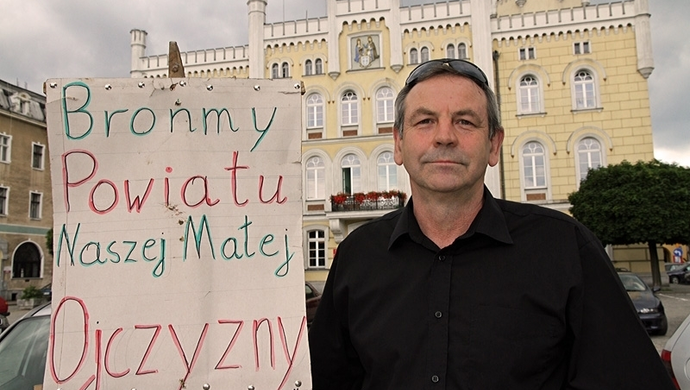 Bronmy
Powiatu
Naszej Małej
Ojczyzny